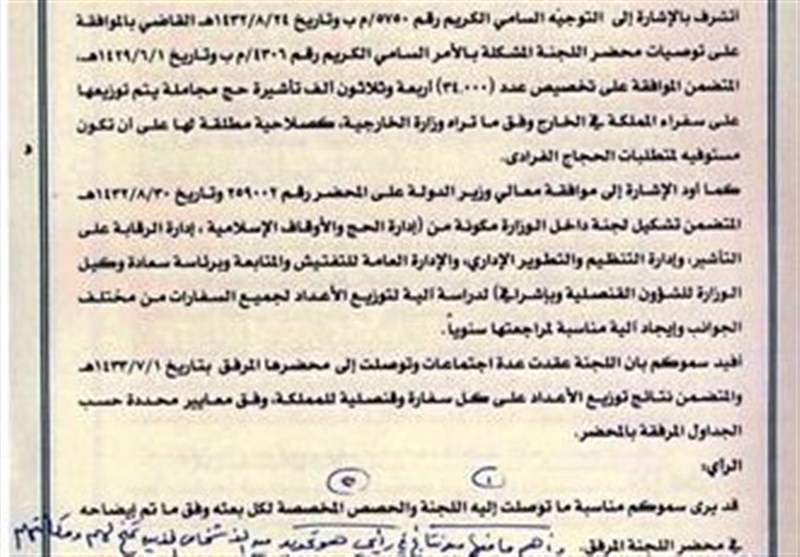 أتشرف بالإشارة إلى التوجيه السامي الكريم رقم ٥٧٥٠/م ب وتاريخ ١٤٣٢/٨/٢٤هـ القاضي بالموافقة
على توصيات محضر اللجنة المشكلة بالأمر السامي الكريم رقم ٤٣٠٦/م ب وتاريخ ١٤٢٩/٦/١هـ،
المتضمن الموافقة على تخصيص عدد (٣٤.٠٠٠) أربعة وثلاثون ألف تأشيرة حج مجاملة يتم توزيعها
على سفراء المملكة في الخارج وفق ما تراه وزارة الخارجية، كصلاحية مطلقة لها على أن تكون
مستوفيه لمتطلبات الحجاج الفرادى.
كما أود الإشارة إلى موافقة معالي وزير الدولة على المحضر رقم ٢٥٩٠٠٢ وتاريخ ١٤٣٢/٨/٣٠هـ
المتضمن تشكيل لجنة داخل الوزارة مكونة من (إدارة الحج والأوقاف الإسلامية ، إدارة الرقابة على
التأشير، وإدارة التنظيم والتطوير الإداري، والإدارة العامة للتفتيش والمتابعة وبرئاسة سعادة وكيل
الوزارة للشؤون القنصلية وبإشرافي) لدراسة آلية لتوزيع الأعداد لجميع السفارات من مختلف
الجوانب وإيجاد آلية مناسبة لمراجعتها سنوياً.
أفيد سموكم بان اللجنة عقدت عدة اجتماعات وتوصلت إلى محضرها المرفق بتاريخ ١٤٣٣/٧/١هـ
والمتضمن نتائج توزيع الأعداد على كل سفارة وقنصلية للمملكة، وفق معايير محددة حسب
الجداول المرفقة بالمحضر.
الرأي:
قد يرى سموكم مناسبة ما توصلت إليه اللجنة والحصص المخصصة لكل بعثه وفق ما تم إيضاحه
في محضر اللجنة المرفق.